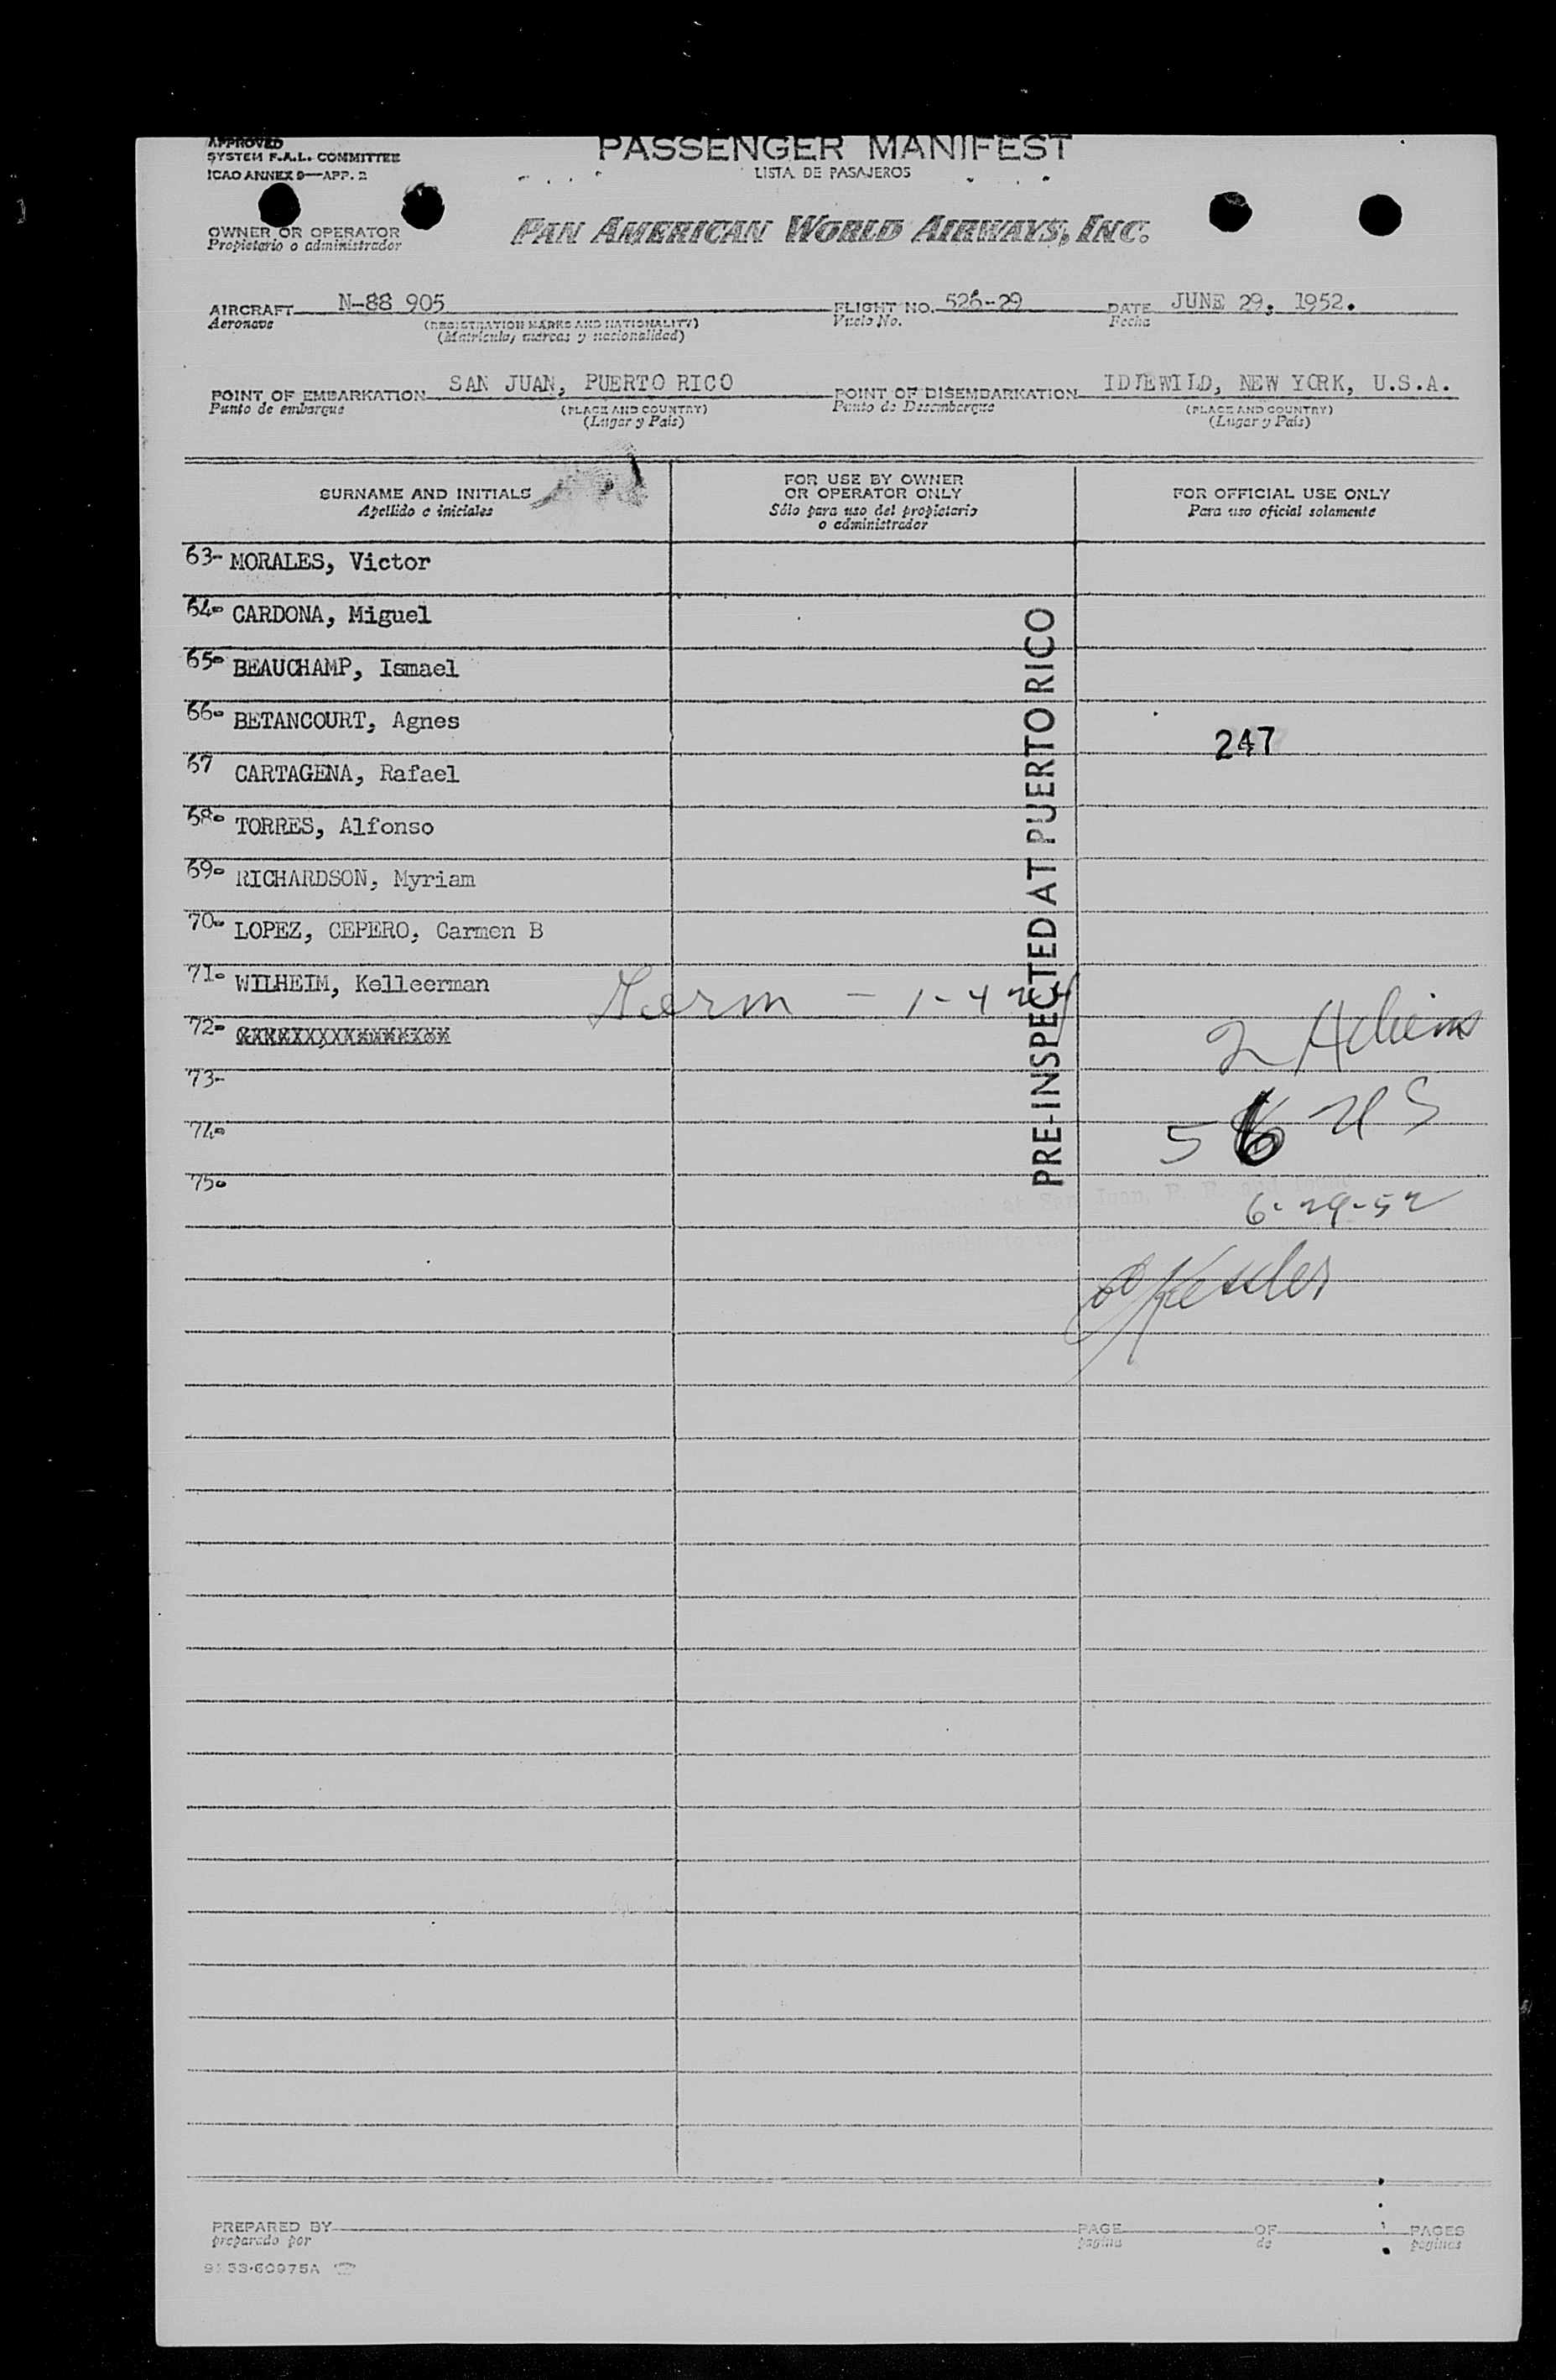 APPROVED
SYSTEM F.A.L. COMMITTEE
ICAO ANNEX 9—APP. 2
PASSENGER MANIFEST
LISTA DE PASAJEROS
OWNER OR OPERATOR
Propietario o administrador
PAN AMERICAN WORLD AIRWAYS, INC.
AIRCRAFT N-88 905 FLIGHT NO. 526-29 DATE JUNE 29, 1952.
Aeronave (REGISTRATION MARKS AND NATIONALITY) Vuelo No. Fecha
(Matrícula, marcas y nacionalidad)
POINT OF EMBARKATION SAN JUAN, PUERTO RICO POINT OF DISEMBARKATION IDLEWILD, NEW YORK, U.S.A.
Punto de embarque (PLACE AND COUNTRY) Punto de Desembarque (PLACE AND COUNTRY)
(Lugar y País) (Lugar y País)
SURNAME AND INITIALS
Apellido e iniciales
FOR USE BY OWNER
OR OPERATOR ONLY
Sólo para uso del propietario
o administrador
FOR OFFICIAL USE ONLY
Para uso oficial solamente
63- MORALES, Victor
64- CARDONA, Miguel
65- BEAUCHAMP, Ismael
66- BETANCOURT, Agnes
247
67 CARTAGENA, Rafael
68- TORRES, Alfonso
69- RICHARDSON, Myriam
70- LOPEZ, CEPERO, Carmen B
71- WILHEIM, Kelleerman Germ - 1-4
72-
73-
74-
75-
PRE-INSPECTED AT PUERTO RICO
2 Aliens
56 US
6-29-52
Kessler
PREPARED BY PAGE OF PAGES
preparado por pagina de paginas